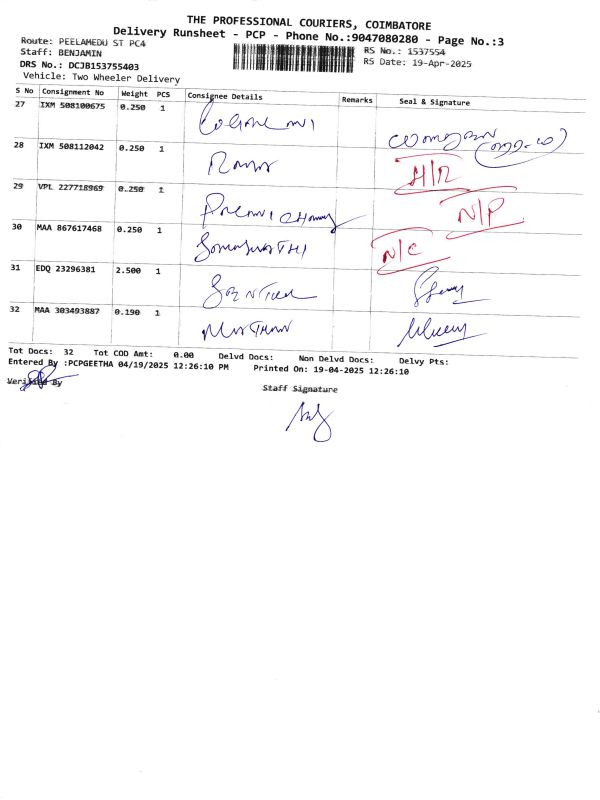 THE PROFESSIONAL COURIERS, COIMBATORE
Delivery Runsheet - PCP - Phone No.:9047080280 - Page No.:3
Route: PEELAMEDU ST PC4
RS No.: 1537554
Staff: BENJAMIN
RS Date: 19-Apr-2025
DRS No.: DCJB153755403
Vehicle: Two Wheeler Delivery
S No Consignment No Weight PCS Consignee Details Remarks Seal & Signature
27 IXM 508100675 0.250 1
28 IXM 508112042 0.250 1 H/R
29 VPL 227718969 0.250 1 N/P
30 MAA 867617468 0.250 1 N/C
31 EDQ 23296381 2.500 1
32 MAA 303493887 0.190 1
Tot Docs: 32 Tot COD Amt: 0.00 Delvd Docs: Non Delvd Docs: Delvy Pts:
Entered By :PCPGEETHA 04/19/2025 12:26:10 PM Printed On: 19-04-2025 12:26:10
Verified By
Staff Signature